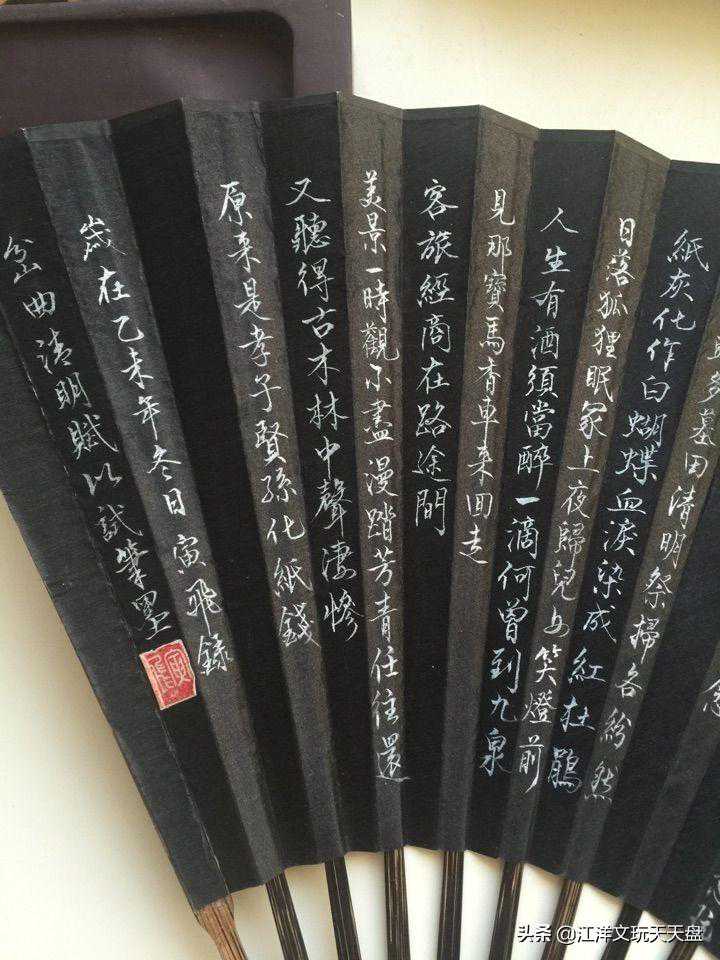 多墓田清明祭掃各紛然
紙灰化作白蝴蝶血淚染成紅杜鵑
日落狐狸眠冢上夜歸兒女笑燈前
人生有酒須當醉一滴何曾到九泉
見那寶馬香車來回走
客旅經商在路途間
美景一時觀不盡漫踏芳青任往還
又聽得古木林中聲淒慘
原來是孝子賢孫化紙錢
歲在乙未年冬日寅飛錄
岔曲清明賦以試筆墨
头条 @江洋文玩天天盘